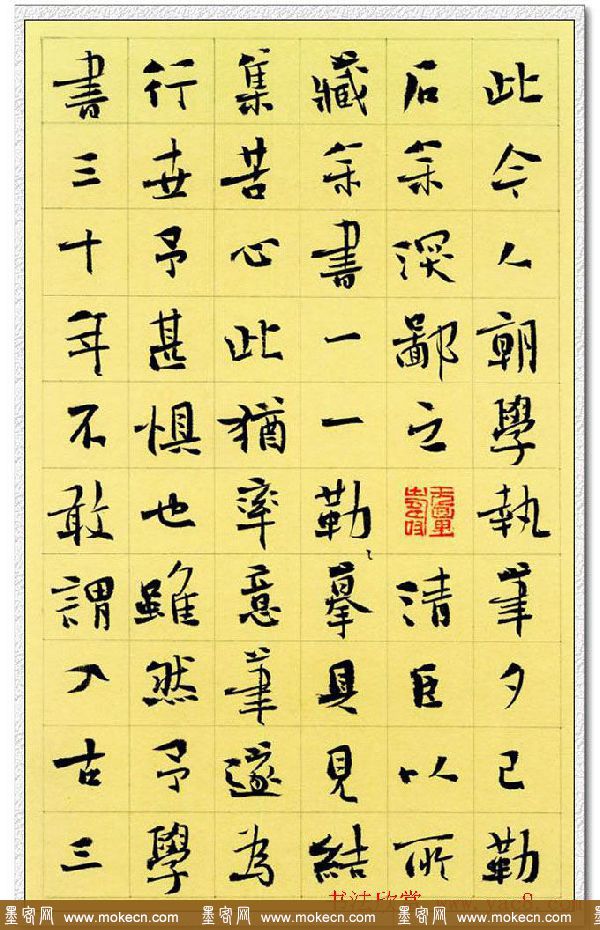 此今人朝學執筆夕已勒
石余深鄙之清臣以所
藏余書一一勒摹具見結
集苦心此猶率意筆遂為
行世予甚惧也雖然予學
書三十年不敢謂入古三
书法欣赏 www.yac8.com
墨客网 www.mokecn.com 墨客网 www.mokecn.com 墨客网 www.mokecn.com